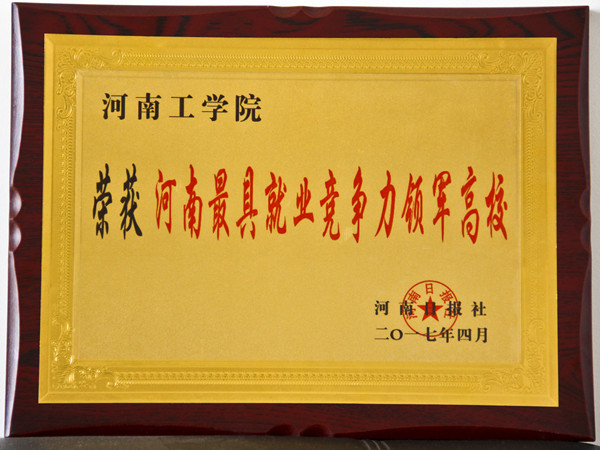 河南工学院
荣获 河南最具就业竞争力领军高校
河南日报社
河南日报社
二〇一七年四月